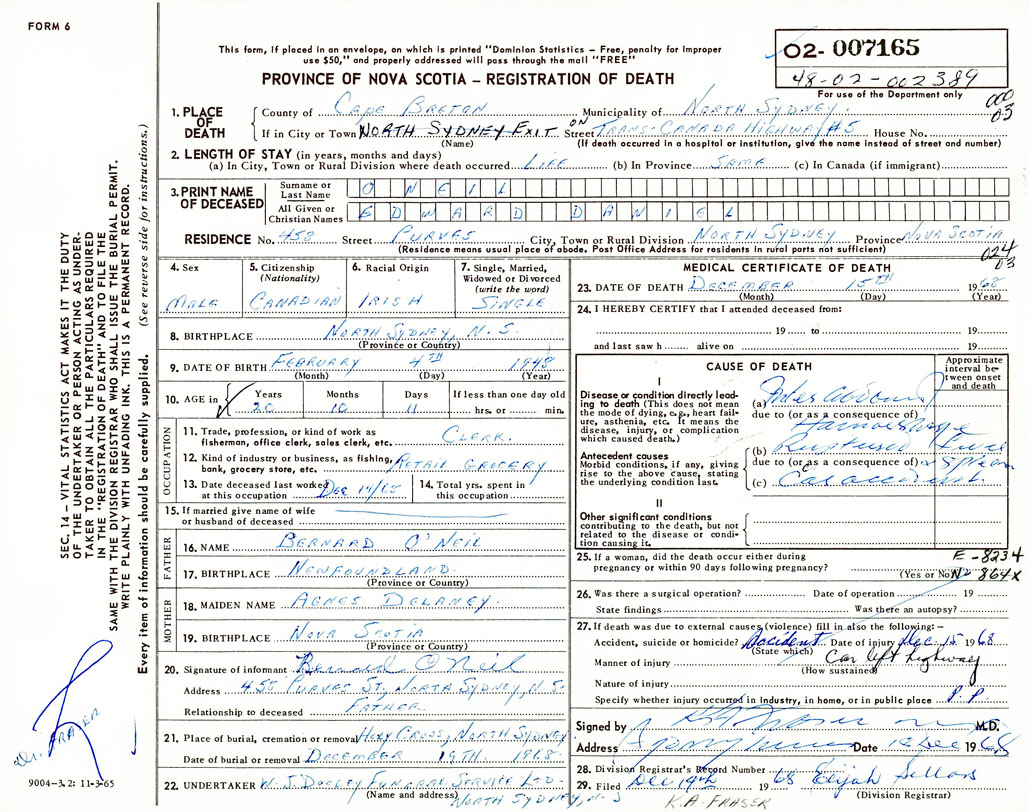 FORM 6
This form, if placed in an envelope, on which is printed "Dominion Statistics – Free, penalty for improper
use $50," and properly addressed will pass through the mail "FREE"
PROVINCE OF NOVA SCOTIA – REGISTRATION OF DEATH
02- 007165
48-02-002389
For use of the Department only
000
03
1. PLACE OF DEATH
County of Cape Breton Municipality of North Sydney.
If in City or Town North Sydney Exit Street on Trans-Canada Highway #5 House No.
(Name) (If death occurred in a hospital or institution, give the name instead of street and number)
2. LENGTH OF STAY (in years, months and days)
(a) In City, Town or Rural Division where death occurred Life (b) In Province Same (c) In Canada (if immigrant)
3. PRINT NAME OF DECEASED
Surname or Last Name O NEIL
All Given or Christian Names EDWARD DANIEL
RESIDENCE No. 458 Street Purves City, Town or Rural Division North Sydney Province Nova Scotia
(Residence means usual place of abode. Post Office Address for residents in rural parts not sufficient)
024
03
4. Sex
Male
5. Citizenship (Nationality)
Canadian
6. Racial Origin
Irish
7. Single, Married, Widowed or Divorced (write the word)
Single
8. BIRTHPLACE North Sydney, N.S.
(Province or Country)
9. DATE OF BIRTH February 4th 1948
(Month) (Day) (Year)
10. AGE in Years Months Days If less than one day old
20 10 11 hrs. or min.
OCCUPATION
11. Trade, profession, or kind of work as fisherman, office clerk, sales clerk, etc. Clerk.
12. Kind of industry or business, as fishing, bank, grocery store, etc. Retail Grocery
13. Date deceased last worked at this occupation Dec 14/68
14. Total yrs. spent in this occupation
15. If married give name of wife or husband of deceased
FATHER
16. NAME Bernard O'Neil
17. BIRTHPLACE Newfoundland.
(Province or Country)
MOTHER
18. MAIDEN NAME Agnes Delaney.
19. BIRTHPLACE Nova Scotia
(Province or Country)
20. Signature of informant Bernard O'Neil
Address 458 Purves St, North Sydney, N.S.
Relationship to deceased Father.
21. Place of burial, cremation or removal Holy Cross, North Sydney
Date of burial or removal December 19th. 1968.
22. UNDERTAKER W. J. Dooley Funeral Service Ltd.
(Name and address) North Sydney, N.S
MEDICAL CERTIFICATE OF DEATH
23. DATE OF DEATH December 15th 1968
(Month) (Day) (Year)
24. I HEREBY CERTIFY that I attended deceased from:
19 to 19
and last saw h alive on 19
CAUSE OF DEATH
Approximate interval between onset and death
I
Disease or condition directly leading to death (This does not mean the mode of dying, e.g., heart failure, asthenia, etc. It means the disease, injury, or complication which caused death.)
(a)
due to (or as a consequence of)
Antecedent causes
Morbid conditions, if any, giving rise to the above cause, stating the underlying condition last.
(b) Ruptured
due to (or as a consequence of) Spleen
(c) Car accident.
II
Other significant conditions contributing to the death, but not related to the disease or condition causing it.
25. If a woman, did the death occur either during
pregnancy or within 90 days following pregnancy?
(Yes or No)
E-8234
N-864X
26. Was there a surgical operation? Date of operation 19
State findings Was there an autopsy?
27. If death was due to external causes (violence) fill in also the following:–
Accident, suicide or homicide? Accident Date of injury Dec. 15 1968
(State which)
Manner of injury Car left highway
(How sustained)
Nature of injury
Specify whether injury occurred in industry, in home, or in public place P.P
Signed by M.D.
Address Date Dec 1968
28. Division Registrar's Record Number
29. Filed Dec 19th 1968 Elijah Sellars
(Division Registrar)
K.A. FRASER
SEC. 14 – VITAL STATISTICS ACT MAKES IT THE DUTY
OF THE UNDERTAKER OR PERSON ACTING AS UNDER-
TAKER TO OBTAIN ALL THE PARTICULARS REQUIRED
IN THE "REGISTRATION OF DEATH" AND TO FILE THE
SAME WITH THE DIVISION REGISTRAR WHO SHALL ISSUE THE BURIAL PERMIT.
WRITE PLAINLY WITH UNFADING INK. THIS IS A PERMANENT RECORD.
Every item of information should be carefully supplied. (See reverse side for instructions.)
Dr. FRASER
9004–3.2: 11-3-65